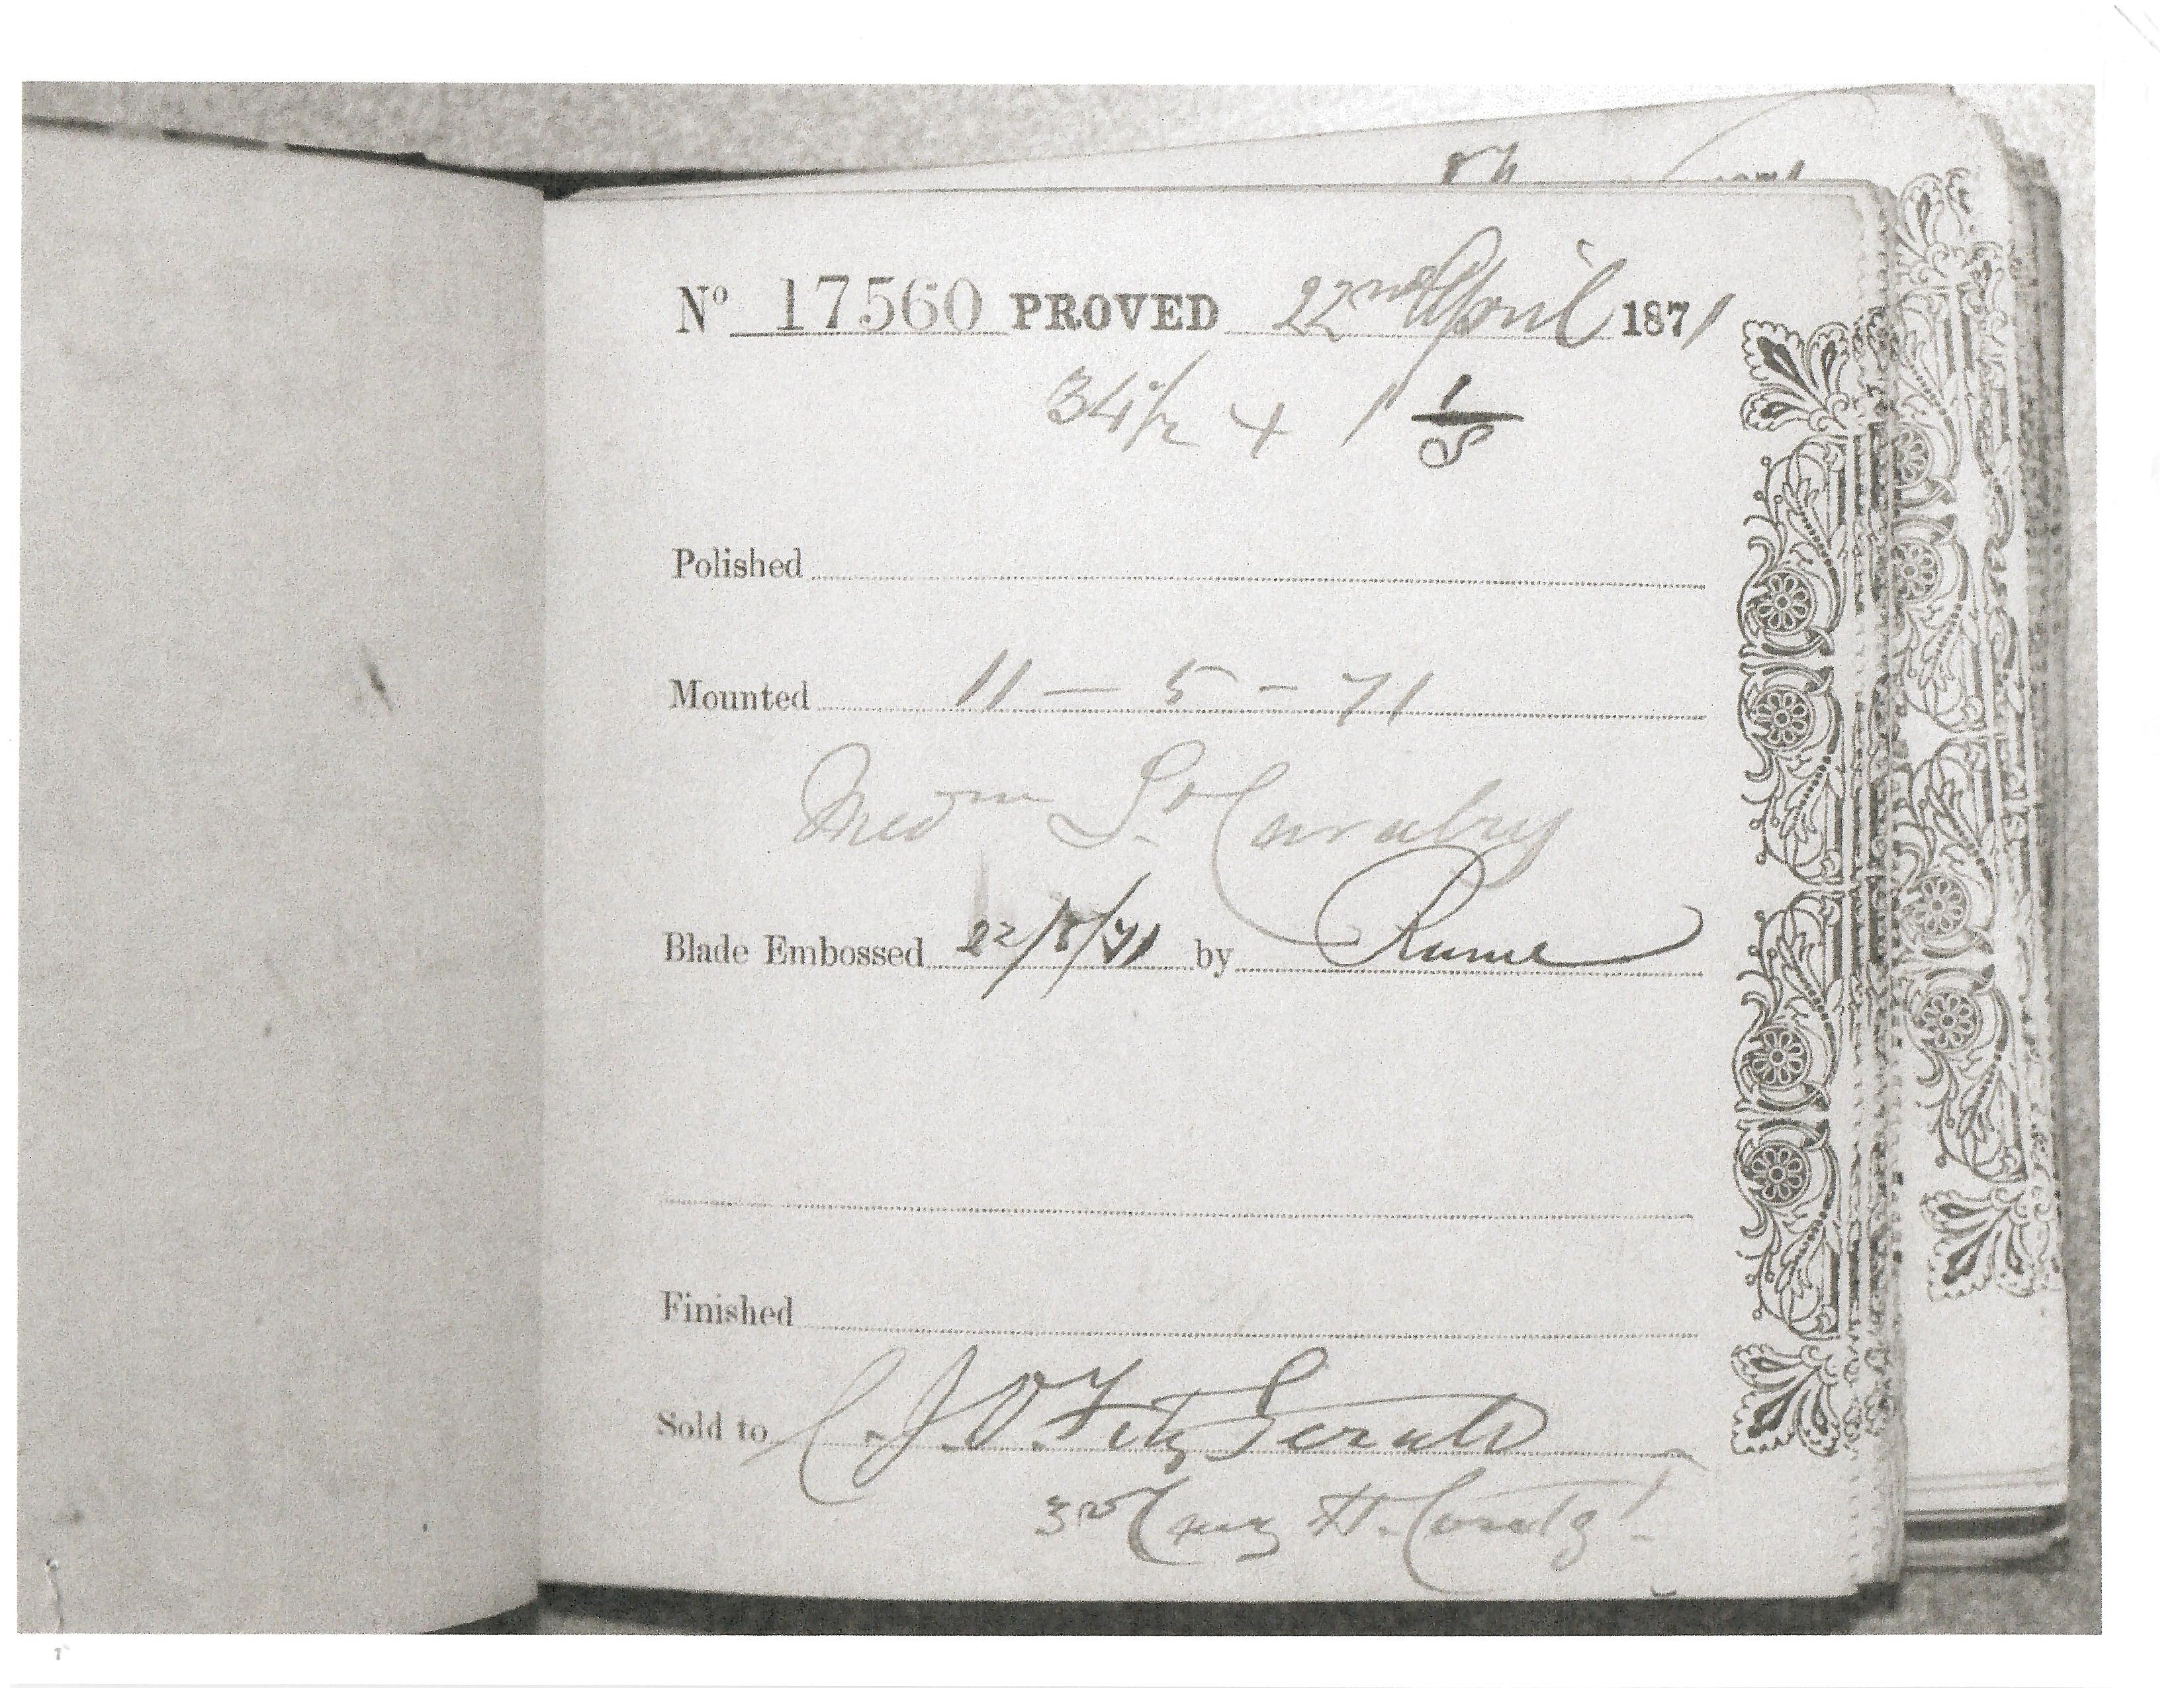 No 17560 PROVED 22nd April 1871
34 1/2 x 1" 1/8
Polished
Mounted 11 - 5 - 71
Medm Lt Cavalry
Blade Embossed 22/5/71 by
Finished
Sold to C. J. O. Fitz Gerald
3rd Cavy H. Contgt.